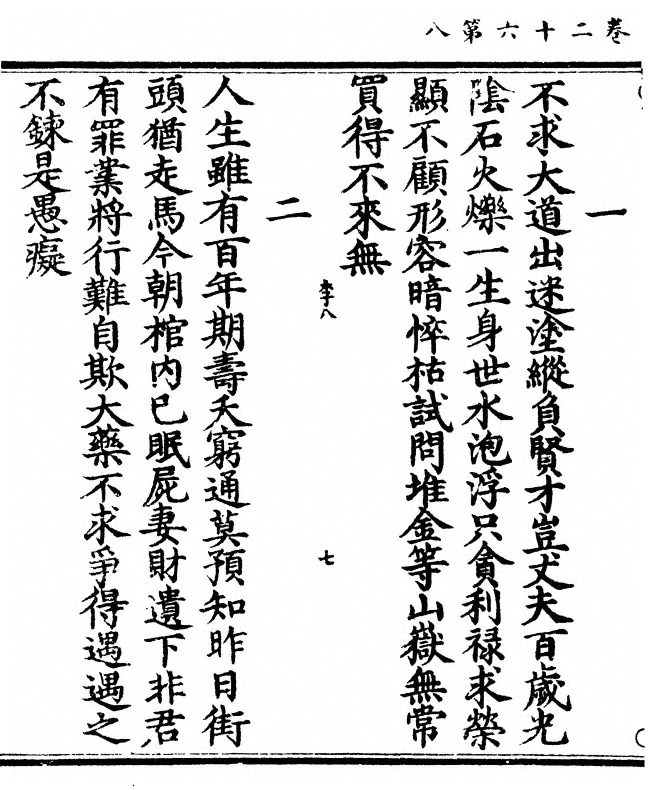 卷二十六第八
一
不求大道出迷塗縱負賢才豈丈夫百歲光
陰石火爍一生身世水泡浮只貪利禄求榮
顯不顧形容暗悴枯試問堆金等山嶽無常
買得不來無
李八 七
二
人生雖有百年期壽夭窮通莫預知昨日街
頭猶走馬今朝棺内已眠屍妻財遺下非君
有罪業將行難自欺大藥不求爭得遇遇之
不鍊是愚癡